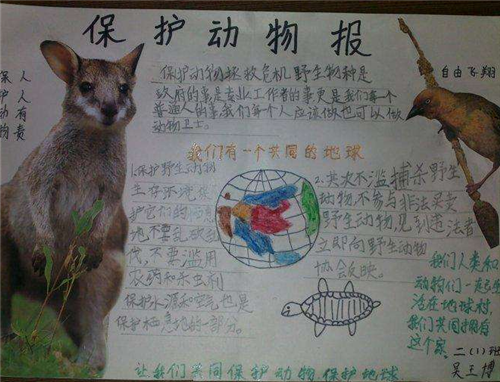 保护动物报
保护动物拯救危机野生物种是
政府的事是专业工作者的事更是我们每一个
普通人的事我们每个人应该做也可以做
动物卫士。
保护动物
人人有责
自由飞翔
我们有一个共同的地球
1.保护野生动物
生存环境
护它们的
地不要乱砍
不要滥用
农药和杀虫剂
保护水源和空气也是
保护栖息地的一部分。
2.其次不滥捕杀野生
动物,不参与非法买卖
野生动物,见到违法者
立即向野生动物
协会反映。
我们人类和
动物们一起生
活在地球村,
我们共同拥有
这个家
二(1)班
吴玉博
让我们共同保护动物保护地球